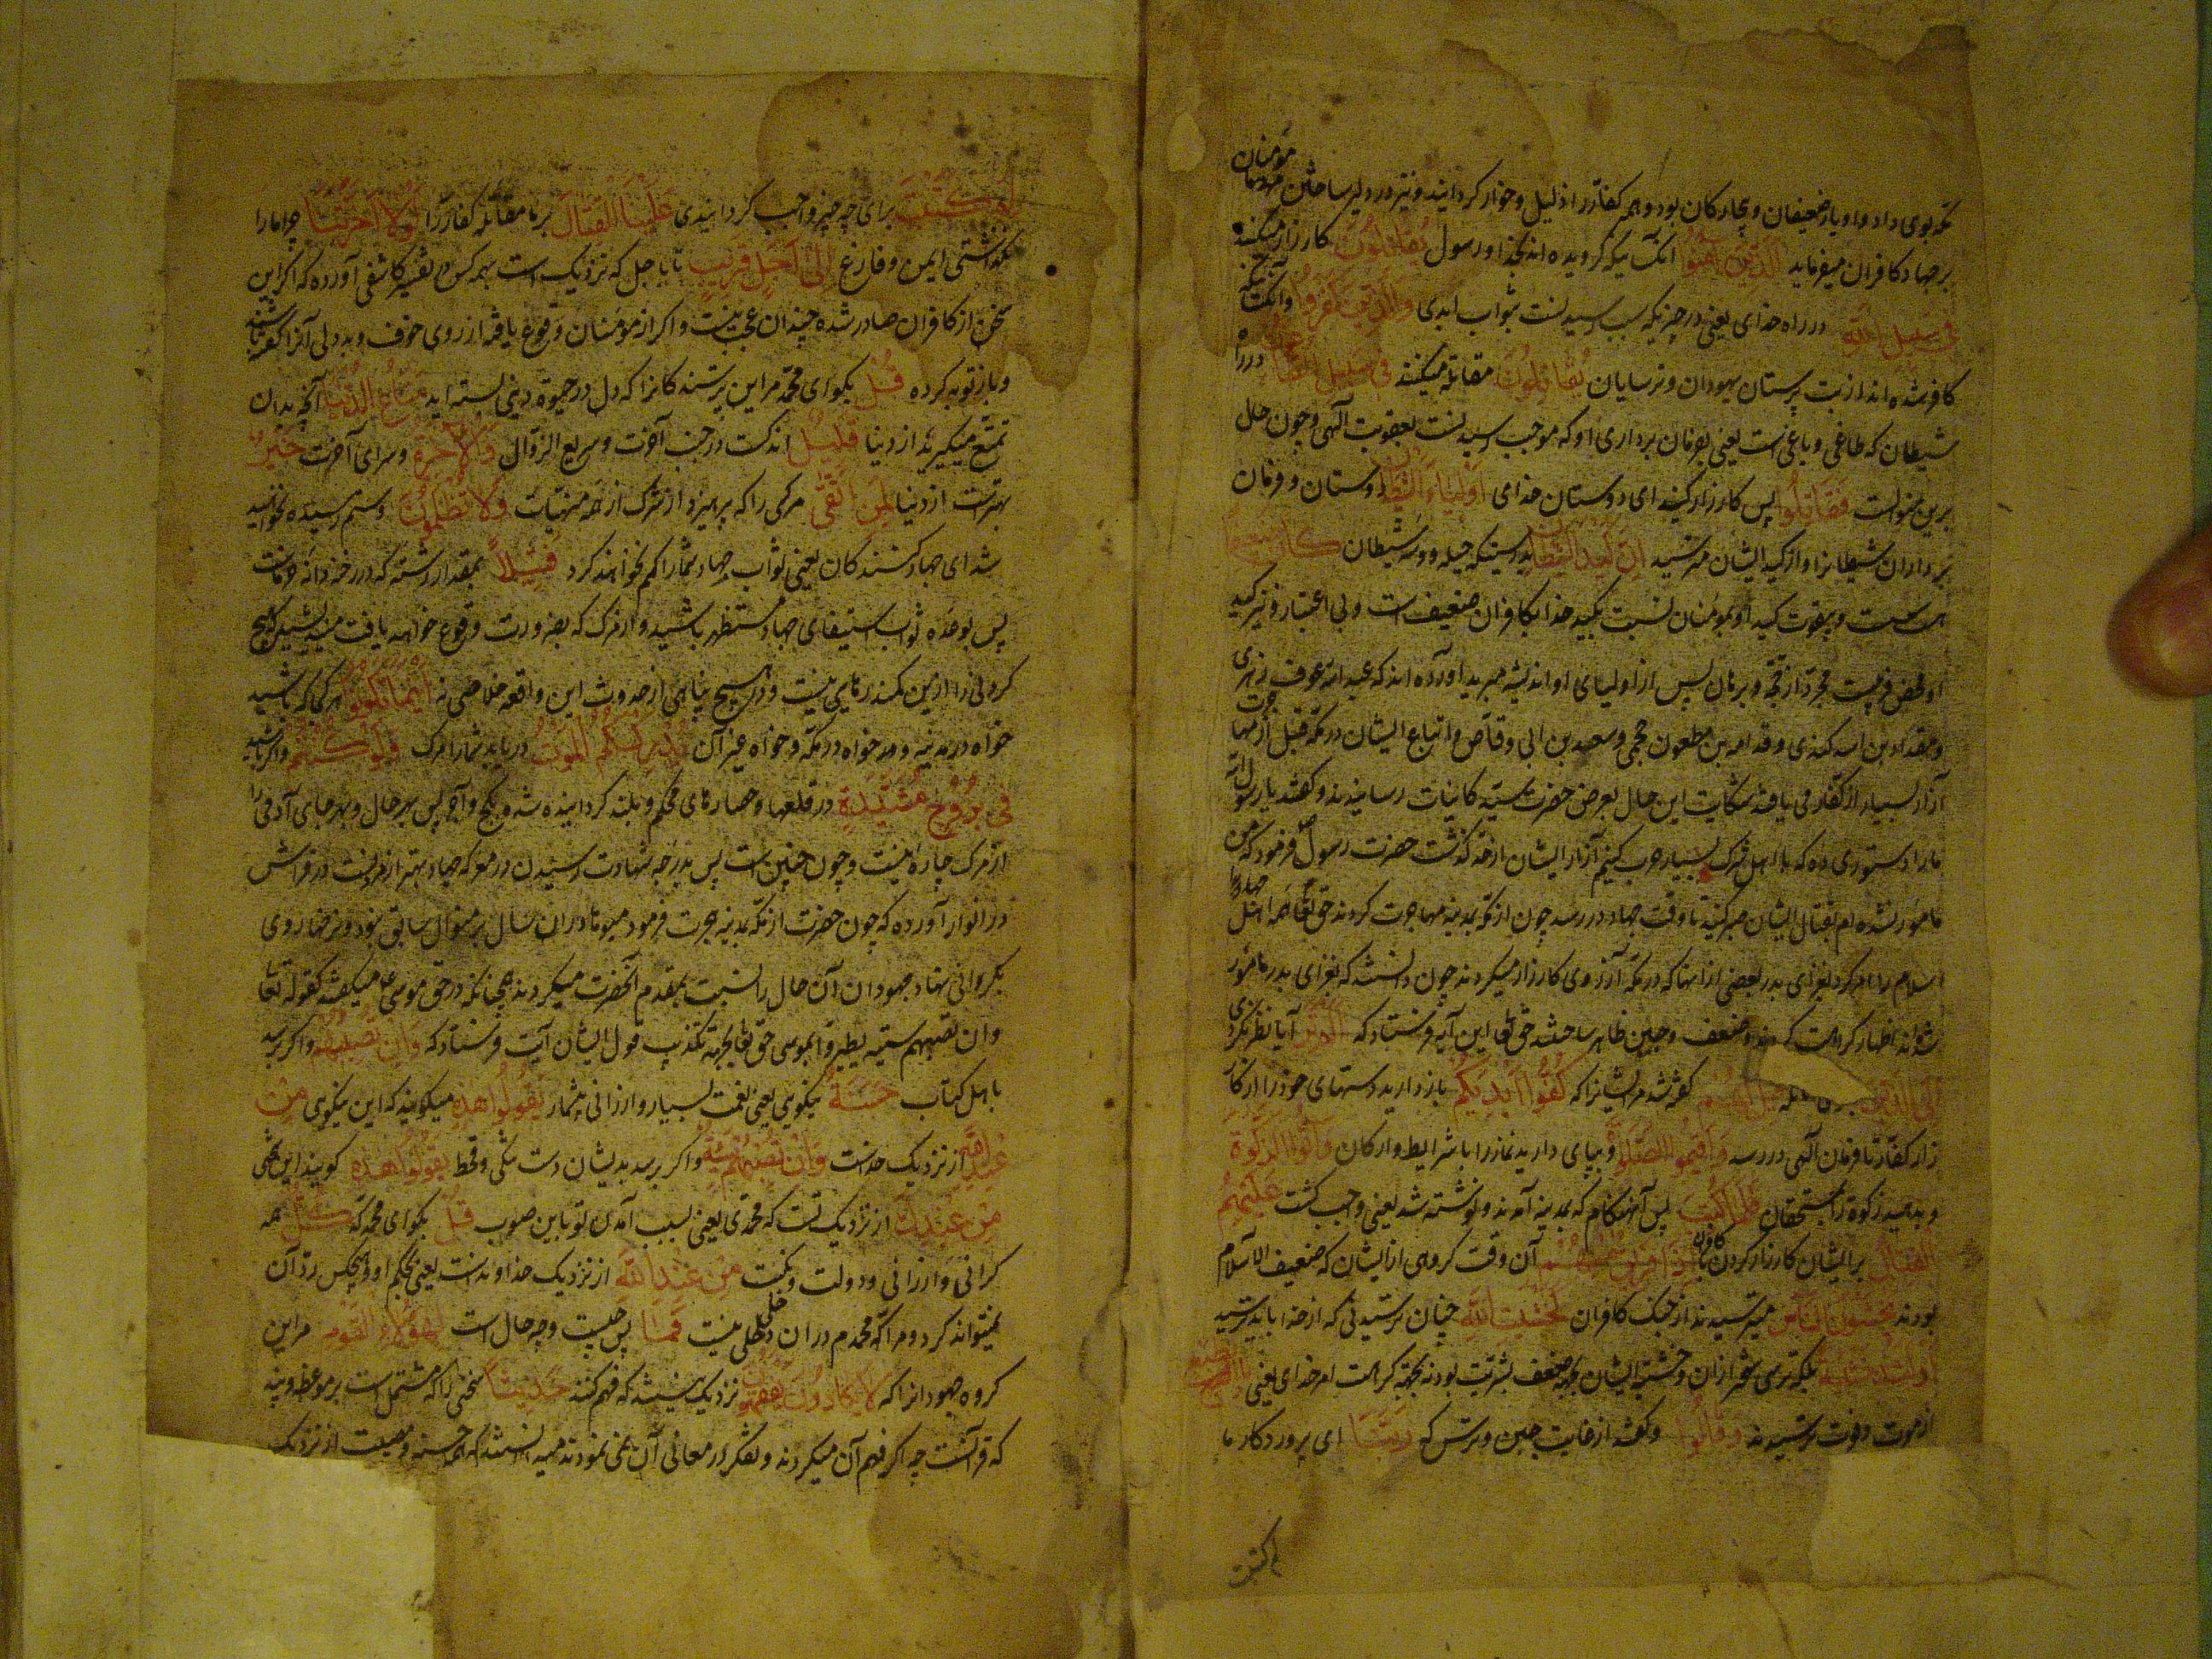 مکه بوی داد و او یار ضعیفان و بیچارگان بود و هم کفار را ذلیل و خوار گردانیدند و نیز در دلیر ساختن مؤمنان
بر جهاد کافران میفرماید الذین آمنوا آنانکه گرویده اند بخدا و رسول یقاتلون کارزار میکنند
فی سبیل الله در راه خدای یعنی در چیزیکه سبب رسیدنست بثواب ابدی والذین کفروا و آنانکه
کافر شده اند از بت پرستان یهودان و ترسایان یقاتلون مقاتله میکنند فی سبیل الطاغوت در راه
شیطان که طاغی و باغی است یعنی بفرمان برداری او که موجب رسیدنست بعقوبت الهی و چون حال
برین منوالست فقاتلوا پس کارزار کنید ای دوستان خدای اولیاء الشیطان دوستان و فرمان
برداران شیطانرا و از کید ایشان مترسید ان کید الشیطان بدرستیکه حیله و وسوسه شیطان کان ضعیفا
هست سست و بیقوت کید او بمؤمنان نسبت بکید خدا بکافران ضعیف است و بی اعتبار و نیز کید
او محض فریبست مجرد از حجه و برهان پس از اولیای او اندیشه مبرید آورده اند که عبد الرحمن عوف زهری
و مقداد بن اسود کندی و قدامه بن مظعون جمحی و سعد بن ابی وقاص و اتباع ایشان در مکه قبل از هجرت
آزار بسیار از کفار می یافتند شکایت این حال بعرض حضرت سید کاینات رسانیدند و گفتند یا رسول الله
ما را دستوری ده که با اهل شرک بسیار حرب کنیم آزار ایشان از حد گذشت حضرت رسول فرمود که من
مامور نشده ام بقتال ایشان صبر کنید تا وقت جهاد در رسد چون از مکه بمدینه مهاجرت کردند حق تعالی اهل
اسلام را امر کرد بغزای بدر بعضی از آنها که در مکه آرزوی کارزار میکردند چون دانستند که بغزای بدر مامور
شده اند اظهار کراهت کردند و ضعف و جبن ظاهر ساختند حق تعالی این آیه فرستاد که الم تر آیا نظر نکردی
الی الذین قیل لهم گفته شد مر ایشانرا که کفوا ایدیکم باز دارید دستهای خود را از کار
زار کفار تا فرمان الهی در رسد و اقیموا الصلوة و بپای دارید نماز را با شرایط و ارکان و آتوا الزکوة
و بدهید زکوة را بمستحقان فلما کتب پس آنهنگام که بمدینه آمدند و نوشته شد یعنی واجب گشت علیهم
القتال بر ایشان کارزار کردن با کافران اذا فریق منهم آن وقت گروهی از ایشان که ضعیف الاسلام
بودند یخشون الناس میترسیدند از جنگ کافران کخشیة الله چنان ترسیدنی که از خدا باید ترسید
او اشد خشیة بلکه ترسی سخت تر از ان و خشیت ایشان بجهت ضعف بشریت بود نه بجهت کراهت امر خدای یعنی
از موت و فوت ترسیدند و قالوا و گفتند از غایت جبن و ترس که ربنا ای پروردگار ما
لم کتبت
لم کتبت برای چه چیز واجب گردانیدی علینا القتال بر ما مقاتله کفار را لولا اخرتنا چرا ما را
نگذاشتی ایمن و فارغ الی اجل قریب تا باجل که نزدیک است بهمه کس در تفسیر کاشفی آورده که اگر این
سخن از کافران صادر شده چندان عجب نیست و اگر از مؤمنان وقوع یافته از روی خوف و بد دلی آنرا گفته باشند
و باز توبه کرده قل بگو ای محمد مر این پرسندگانرا که دل در حیوة دنیی بسته اید متاع الدنیا آنچه بدان
تمتع میگیرید از دنیا قلیل اندکست در جنب آخرت و سریع الزوال والآخرة و سرای آخرت خیر
بهترست از دنیا لمن اتقی مر کسی را که پرهیزد از شرک از همه منهیات ولا تظلمون و ستم رسیده نخواهید
شد ای جهاد کنندگان یعنی ثواب جهاد شما را کم نخواهند کرد فتیلا بمقدار رشته که در رخنه دانه خرماست
پس بوعده ثواب استیفای جهاد مستظهر باشید و از مرگ که بضرورت وقوع خواهد یافت میندیشید که هیچ
کس را ازین کمند رهایی نیست و در هیچ پناهی از حدوث این واقعه خلاصی نه اینما تکونوا هر کجا که باشید
خواه در مدینه و بدر خواه در مکه و خواه غیر آن یدرککم الموت دریابد شما را مرگ ولو کنتم و اگر باشید
فی بروج مشیدة در قلعها و حصارهای محکم و بلند گردانیده شده بگچ و آجر پس بهر حال و بهر جای آدمی را
از مرگ چاره نیست و چون چنین است پس بدرجه شهادت رسیدن در معرکه جهاد بهتر از مردنست در فراش
در انوار آورده که چون حضرت از مکه بمدینه هجرت فرمود میوها در ان سال بر منوال سابق نبود و نرخها روی
بگرانی نهاد جهودان آن حال را نسبت بمقدم آنحضرت میکردند همچنانکه در حق موسی میگفتند کقوله تعالی
و ان تصبهم سیئة یطیروا بموسی حق تعالی بجهة تکذیب قول ایشان آیت فرستاد که و ان تصبهم و اگر برسد
باهل کتاب حسنة نیکویی یعنی نعمت بسیار و ارزانی بیشمار یقولوا هذه میگویند که این نیکویی من
عند الله از نزدیک خداست و ان تصبهم سیئة و اگر برسد بدیشان دست تنگی و قحط یقولوا هذه گویند این سختی
من عندک از نزدیک تست که محمدی یعنی بسبب آمدن تو باین صوب قل بگو ای محمد که کل همه
گرانی و ارزانی و دولت و نکبت من عند الله از نزدیک خداوندست یعنی بحکم او و هیچکس رد آن
نمیتواند کرد و مرا که محمدم در ان دخلی نیست فما پس چیست و چه حال است لهؤلاء القوم مر این
گروه جهودانرا که لا یکادون یفقهون نزدیک نیستند که فهم کنند حدیثا سخنی را که مشتمل است بر موعظه و پند
که قرآنست چه اگر فهم آن میکردند و تفکر در معانی آن می نمودند میدانستند که حسنه و مصیبت از نزدیک